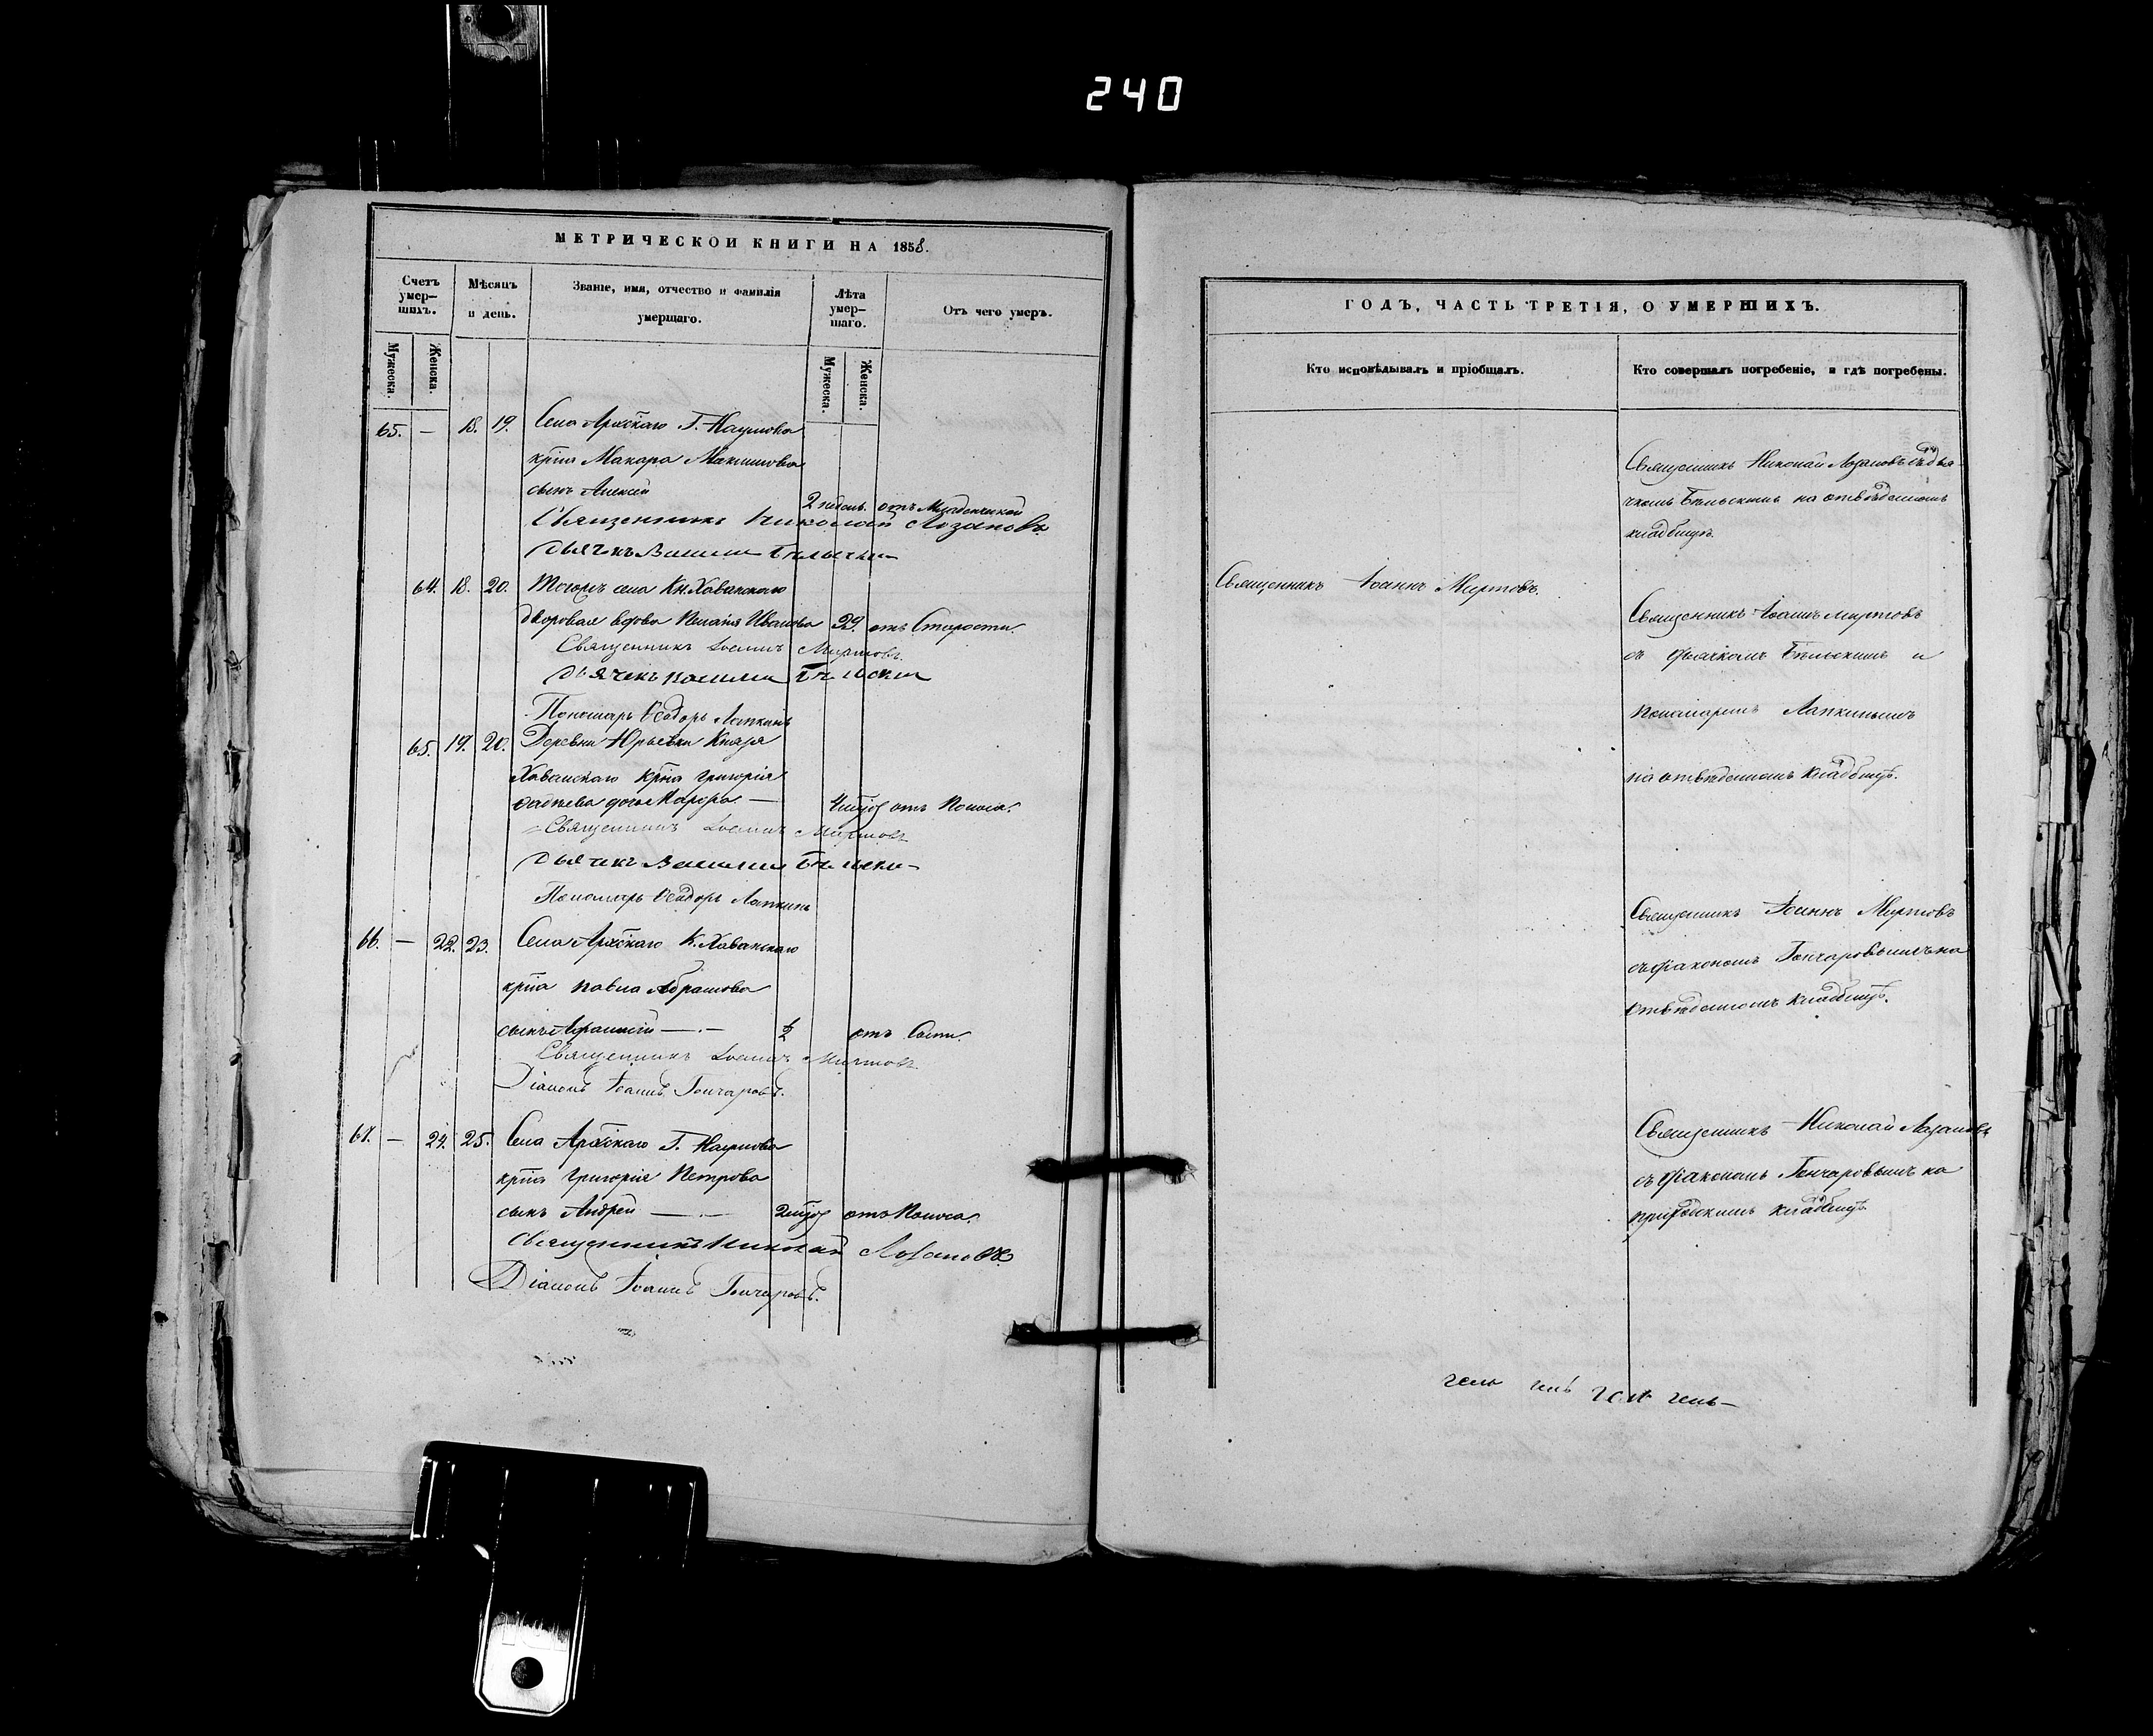 240
МЕТРИЧЕСКОЙ КНИГИ НА 1858.
Счетъ умер-шихъ.
Мѣсяцъ и день.
Званіе, имя, отчество и фамилія умершаго.
Лѣта умер-шаго.
Отъ чего умеръ.
Мужеска.
Женска.
Мужеска.
Женска.
65. — 18. 19. Села Г. Наумова
крⷭ҇на Макара Максимова
сынъ Алексѣй 2 недѣль. отъ Младенческой
Священникъ Николай Лозановъ.
Дьячекъ Василій Бѣльскій
64. 18. 20. Тогожъ села Кн. Хованскаго
дворовая вдова Иванова 29. отъ Старости.
Священникъ Іоаннъ Миртовъ.
Дьячекъ Василій Бѣльскій
Пономарь Ѳеодоръ Лапкинъ
65. 19. 20. Деревни Юрьевки Князя
Хованскаго Григорія
дочь 4 отъ Поноса.
Священникъ Іоаннъ Миртовъ
Дьячекъ Василій Бѣльскій
Пономарь Ѳеодоръ Лапкинъ
66. — 22. 23. Села К. Хованскаго
Павла Абрамова
сынъ — ½ отъ
Священникъ Іоаннъ Миртовъ
Діаконъ Іоаннъ Гончаровъ.
67. — 24. 25. Села Г. Наумова
Григорія Петрова
сынъ Андрей — 2 отъ Поноса.
Священникъ Николай Лозановъ
Діаконъ Іоаннъ Гончаровъ.
ГОДЪ, ЧАСТЬ ТРЕТІЯ, О УМЕРШИХЪ.
Кто исповѣдывалъ и пріобщалъ.
Кто совершалъ погребеніе, и гдѣ погребены.
Священникъ Николай Лозановъ съ дья-
чкомъ Бѣльскимъ на отведенномъ
кладбищѣ.
Священникъ Іоаннъ Миртовъ.
Священникъ Іоаннъ Миртовъ
съ дьячкомъ Бѣльскимъ и
пономаремъ Лапкинымъ
на отведенномъ кладбищѣ.
Священникъ Іоаннъ Миртовъ
съ діакономъ Гончаровымъ на
отведенномъ кладбищѣ.
Священникъ Николай Лозановъ
съ діакономъ Гончаровымъ на
приходскомъ кладбищѣ